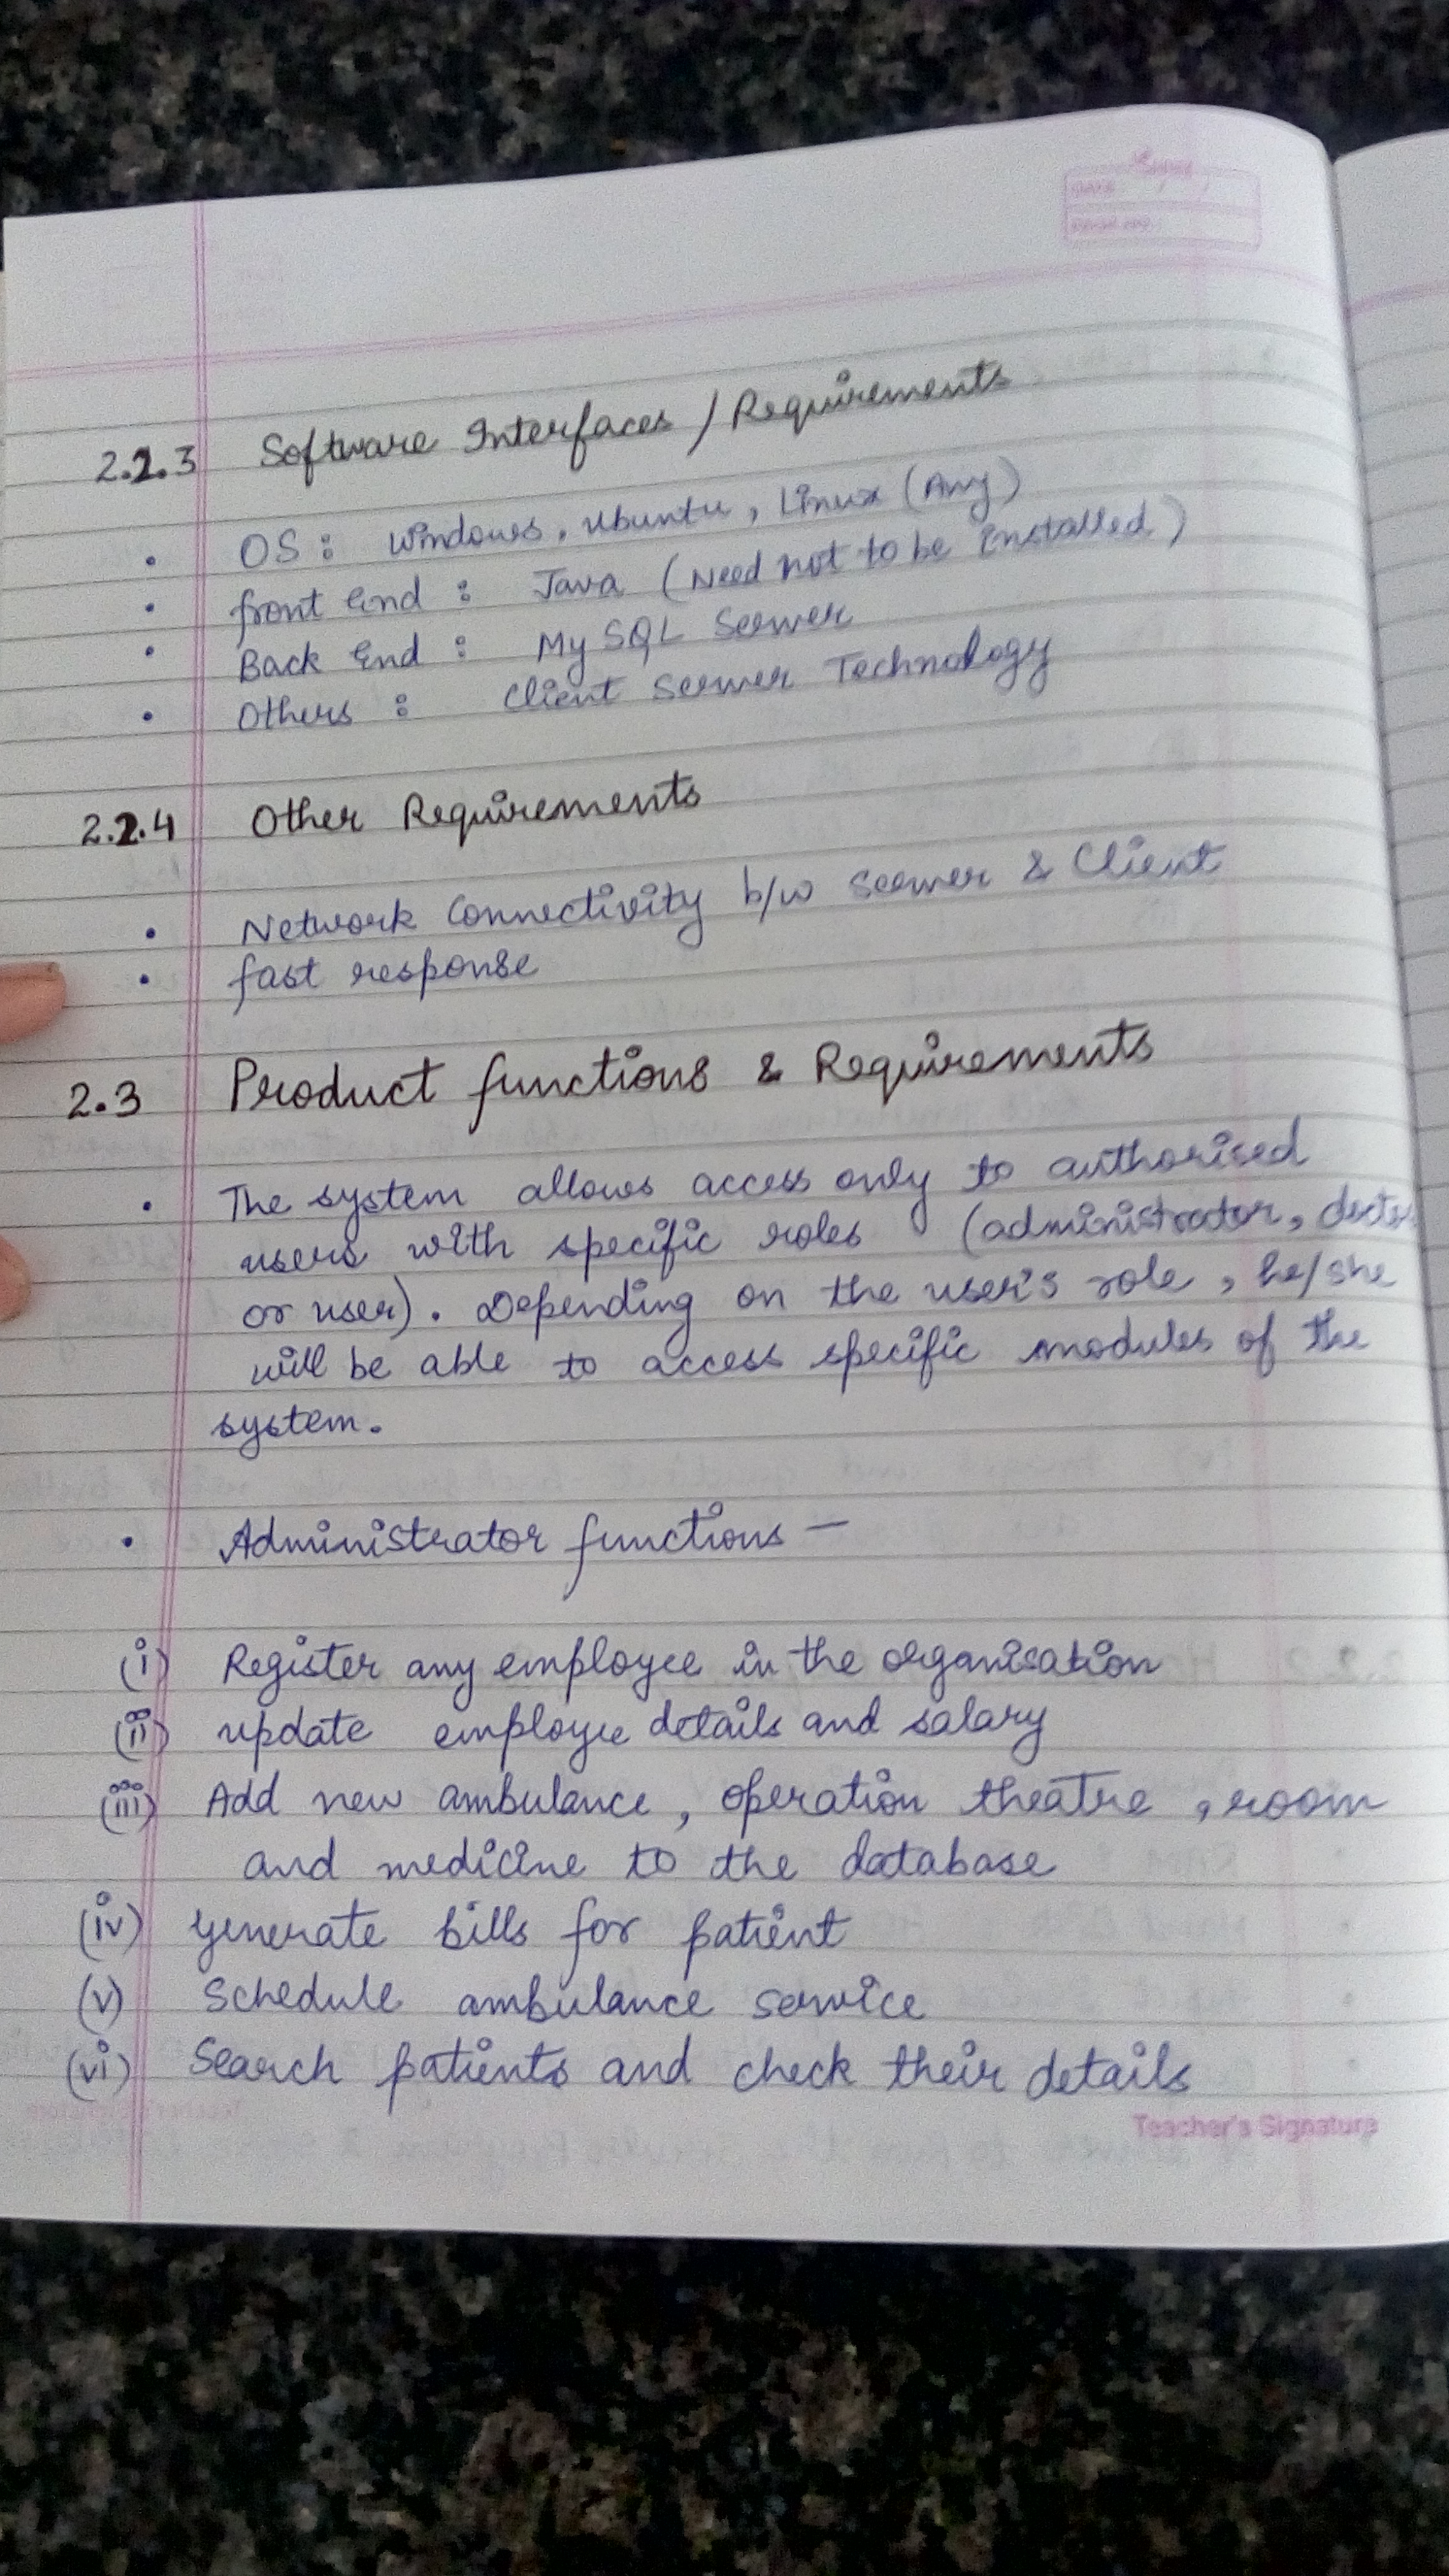 2.2.3 Software Interfaces / Requirements
• OS : Windows, Ubuntu, Linux (Any)
• front End : Java (Need not to be installed)
• Back End : My SQL Server
• Others : Client Server Technology
2.2.4 Other Requirements
• Network Connectivity b/w Server & Client
• fast response
2.3 Product functions & Requirements
• The system allows access only to authorised
users with specific roles (administrator, doctor
or user). Depending on the user's role, he/she
will be able to access specific modules of the
system.
• Administrator functions —
(i) Register any employee in the organisation
(ii) update employee details and salary
(iii) Add new ambulance, operation theatre, room
and medicine to the database
(iv) generate bills for patient
(v) Schedule ambulance service
(vi) Search patients and check their details
Teacher's Signature